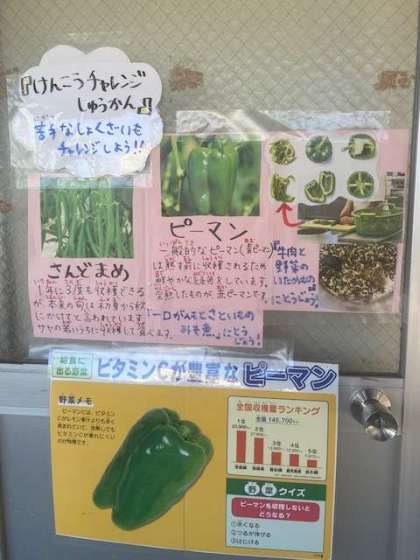 『けんこうチャレンジ
しゅうかん』
苦手なしょくざいも
チャレンジしよう!!
さんどまめ
1年に3度も収穫できる
が、本来の旬は初夏から秋
にかけてと言われています。
サヤが若いうちに収穫して食
ピーマン
一般的なピーマン(青ピーマン)
は熟す前に収穫されるため
鮮やかな緑色をしています。
完熟したものが、赤ピーマンです。
『牛肉と
野菜の
いためもの』
にとうじょう!
『コロがんもとさといもの
みそ煮』にとう
じょう!
給食に
出る野菜
ビタミンCが豊富なピーマン
野菜メモ
ピーマンには、ビタミン
Cがレモン果汁よりも多く
含まれていて、加熱しても
ビタミンCが壊れにくい
のが特徴です。
全国収穫量ランキング
全国 145,700トン
1位
2位
3位
4位
5位
茨城県
宮崎県
高知県
鹿児島県
岩手県
野菜クイズ
ピーマンを収穫しないと
どうなる?
①赤くなる
②つるが伸びる
③はじける